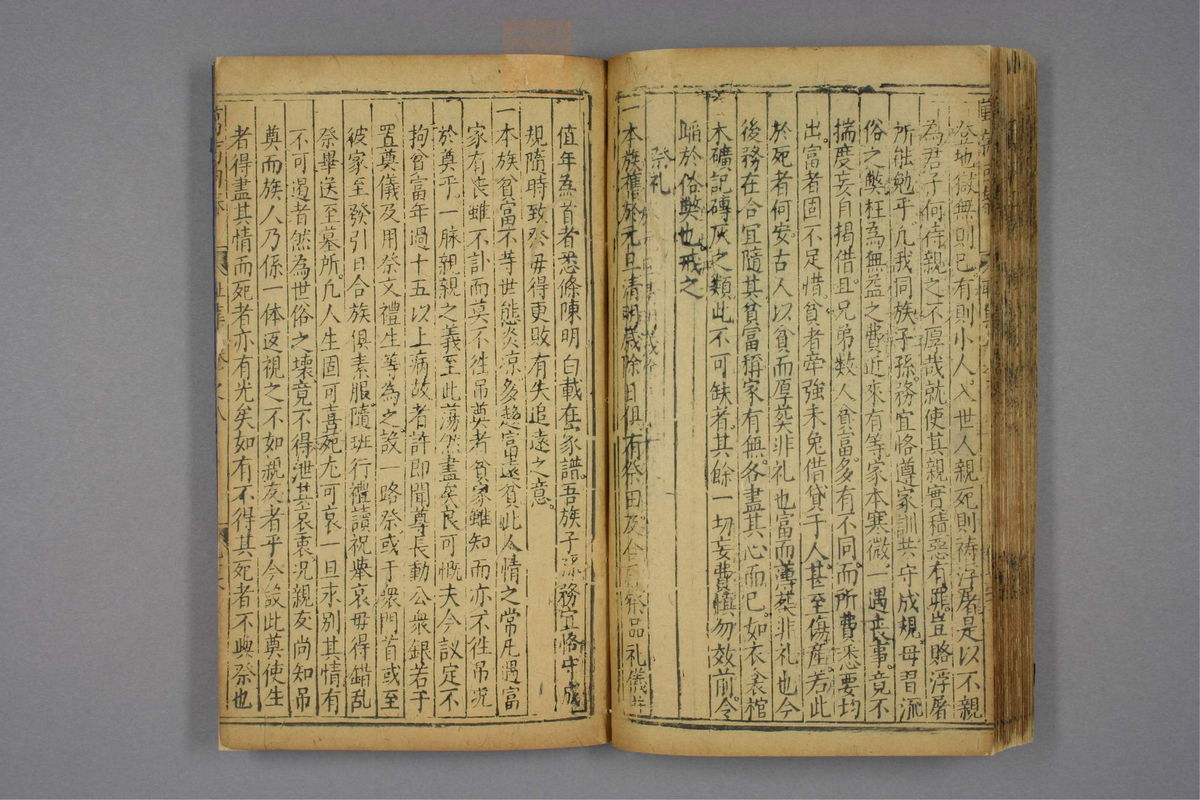 登地獄無則已有則小人入世人親死則禱浮屠是以不親
為君子何待親之不厚哉就使其親實積惡有罪豈賂浮屠
所能勉乎凢我同族子孫務宜恪遵家訓共守成規毋習流
俗之獘枉為無益之費近來有等家本寒微一遇喪事竟不
揣度妄自揭借且兄弟數人貧富多有不同而所費悉要均
出富者固不足惜貧者牽強未免借貸于人甚至傷産若此
於死者何安古人以貧而厚葬非礼也富而薄葬非礼也今
後務在合宜隨其貧富稱家有無各盡其心而已如衣衾棺
木礦記磚灰之類此不可缺者其餘一切妄費慎勿效前令
䧟於俗獘也戒之
祭礼
一本族舊於元旦清明歲除日俱有祭田及合祭品礼儀并
值年為首者悉條陳明白載在家譜吾族子孫務宜恪守成
規隨時致祭毋得更改有失追遠之意
一本族貧富不等世態炎凉多趍富遠貧此人情之常凢遇富
家有丧雖不訃而莫不徃吊奠者貧家雖知而亦不徃吊况
於奠乎一脉親親之義至此蕩然盡矣良可慨夫今議定不
拘貧富年過十五以上病故者許即聞尊長動公衆銀若干
置奠儀及用祭文禮生等為之設一路祭或于衆門首或至
彼家至發引日合族俱素服隨班行禮讀祝舉哀毋得錯乱
祭畢送至墓所凢人生固可喜死尤可哀一旦永别其情有
不可遏者然為世俗之壞竟不得泄其哀衷况親友尚知吊
奠而族人乃係一体迫視之不如親友者乎今設此奠使生
者得盡其情而死者亦有光矣如有不得其死者不與祭也